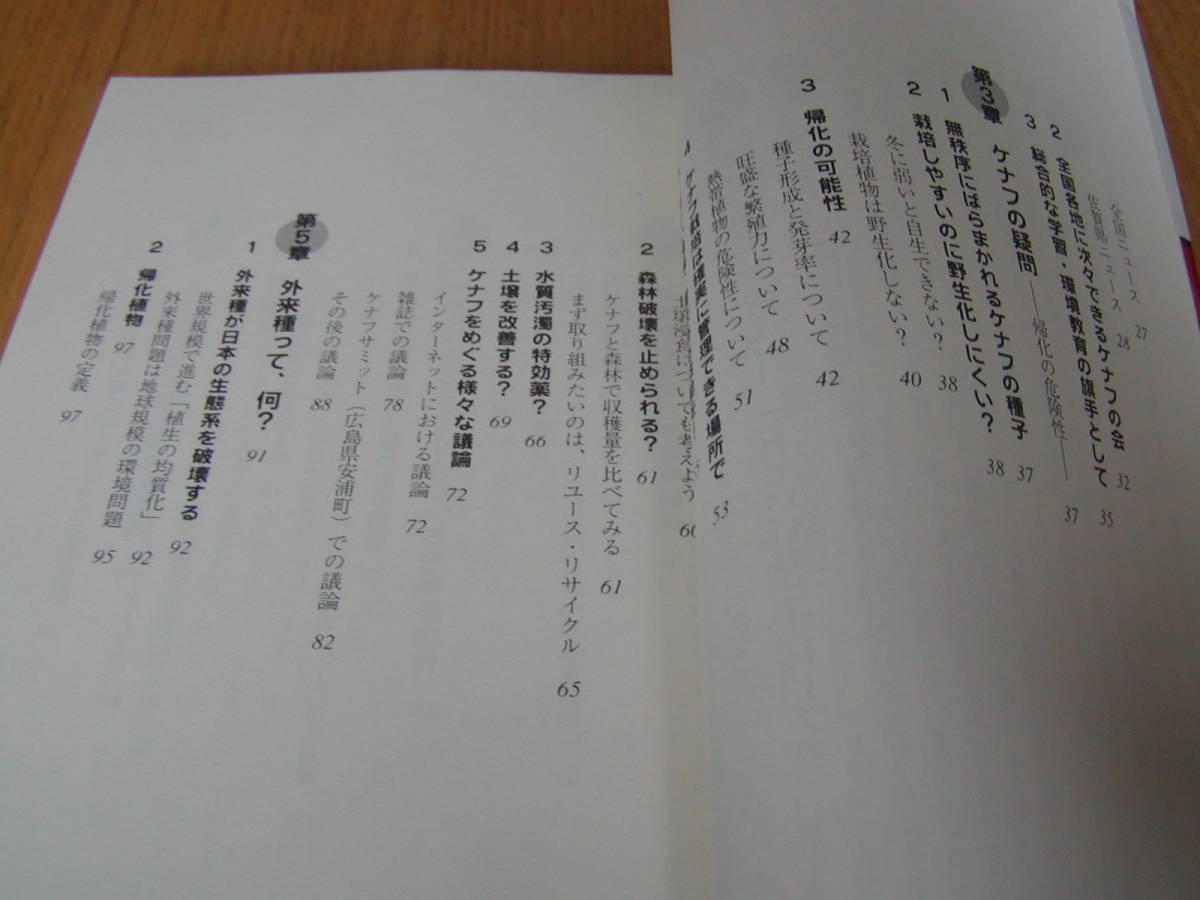 全国ニュース 27
佐賀県ニュース 28
2 全国各地に次々できるケナフの会 32
3 総合的な学習・環境教育の旗手として 35
第3章 ケナフの疑問――帰化の危険性―― 37
1 無秩序にばらまかれるケナフの種子 37
2 栽培しやすいのに野生化しにくい? 38
冬に弱いと自生できない? 38
栽培植物は野生化しない? 40
3 帰化の可能性 42
種子形成と発芽率について 42
旺盛な繁殖力について 48
熱帯植物の危険性について 51
ケナフ栽培は確実に管理できる場所で 53
についても考えよう 60
2 森林破壊を止められる? 61
ケナフと森林で収穫量を比べてみる 61
まず取り組みたいのは、リユース・リサイクル 65
3 水質汚濁の特効薬? 66
4 土壌を改善する? 69
5 ケナフをめぐる様々な議論 72
インターネットにおける議論 72
雑誌での議論 78
ケナフサミット(広島県安浦町)での議論 82
その後の議論 88
第5章 外来種って、何? 91
1 外来種が日本の生態系を破壊する 92
世界規模で進む「植生の均質化」 92
外来種問題は地球規模の環境問題 95
2 帰化植物 97
帰化植物の定義 97